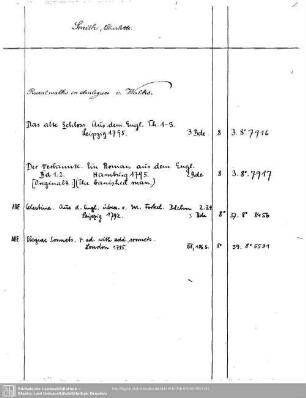 Smith, Charlotte.
Rural walks in dialogues v. Walks.
Das alte Schloss. Aus dem Engl. Th. 1-3.
Leipzig 1795. 3 Bde. 8 3. 8°. 7916
Der Verbannte. Ein Roman aus dem Engl.
Bd 1.2. Hamburg 1795. 2 Bde 8 3. 8°. 7917
[Originalt.] (The banished man)
Celestine. Aus d. Engl. übers. v. M. Forkel. Bdchen
Leipzig 1792. 3 Bde 8° 37. 8° 8456
Elegiac Sonnets. 7. ed. with add. sonnets.
London 1795 8° 39. 8°